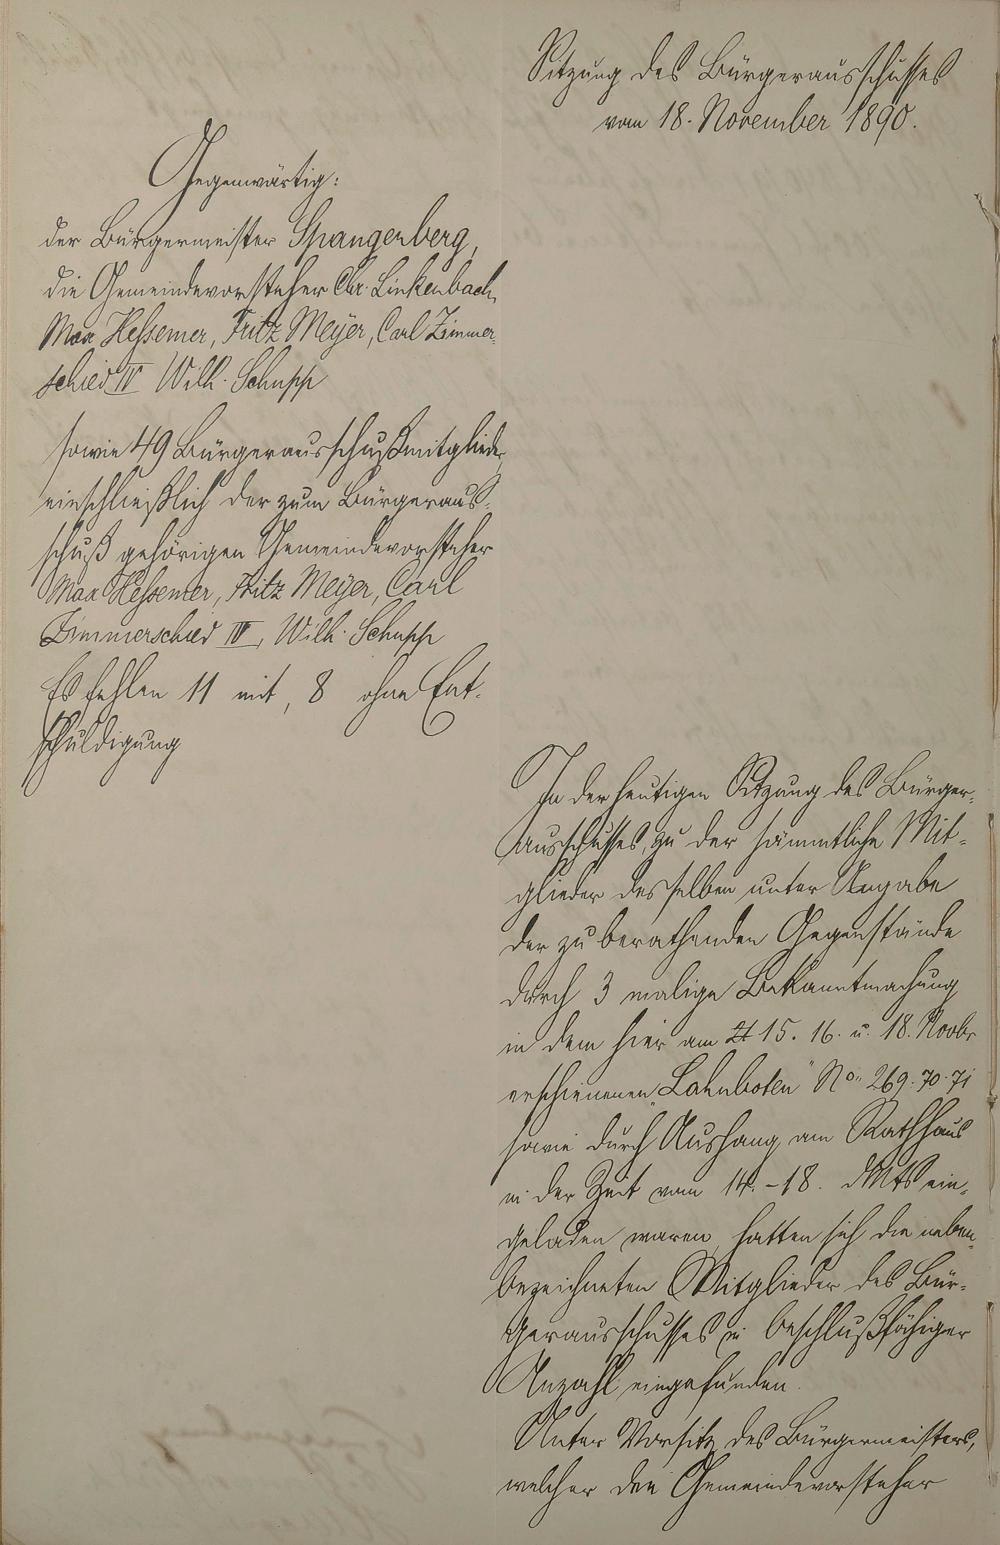 Sitzung des Bürgerausschusses
vom 18. November 1890.
Gegenwärtig:
der Bürgermeister Spangenberg,
die Gemeindevorsteher Chr. Linkenbach,
Max Heßemer, Fritz Meyer, Carl Zimmer-
schied IV Wilh. Schupp
sowie 49 Bürgerausschußmitglieder
einschließlich der zum Bürgeraus-
schuß gehörigen Gemeindevorsteher
Max Heßemer, Fritz Meyer, Carl
Zimmerschied IV, Wilh. Schupp
Es fehlen 11 mit, 8 ohne Ent-
schuldigung
In der heutigen Sitzung des Bürger-
ausschusses, zu der sämmtliche Mit-
glieder desselben unter Angabe
der zu berathenden Gegenstände
durch 3 malige Bekanntmachung
in dem hier am 15. 16. u. 18. Novbr
erschienenen "Lahnboten" No. 269. 70. 71
sowie durch Aushang am Rathhaus
in der Zeit vom 14. - 18. dMts ein-
geladen waren, hatten sich die neben-
bezeichneten Mitglieder des Bür-
gerausschusses in beschlußfähiger
Anzahl eingefunden.
Unter Vorsitz des Bürgermeisters,
welcher den Gemeindevorsteher